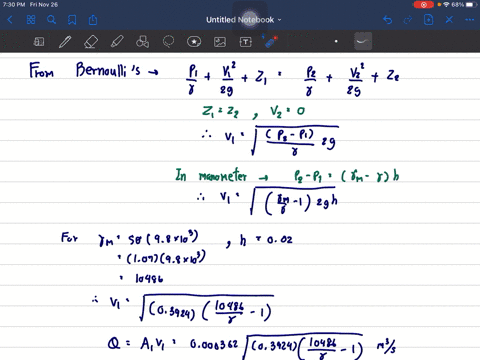 7:30 PM Fri Nov 26
68%
Untitled Notebook
From Bernoulli's → P1/γ + V1²/2g + Z1 = P2/γ + V2²/2g + Z2
Z1 = Z2 , V2 = 0
∴ V1 = √((P2 - P1)/γ 2g)
In manometer → P2 - P1 = (γm - γ) h
∴ V1 = √((γm/γ - 1) 2gh)
For γm = SG (9.8 × 10³) , h = 0.02
= (1.07)(9.8 × 10³)
= 10486
∴ V1 = √((0.3924) (10486/γ - 1))
Q = A1 V1 = 0.006362 √((0.3924)(10486/γ - 1)) m³/s